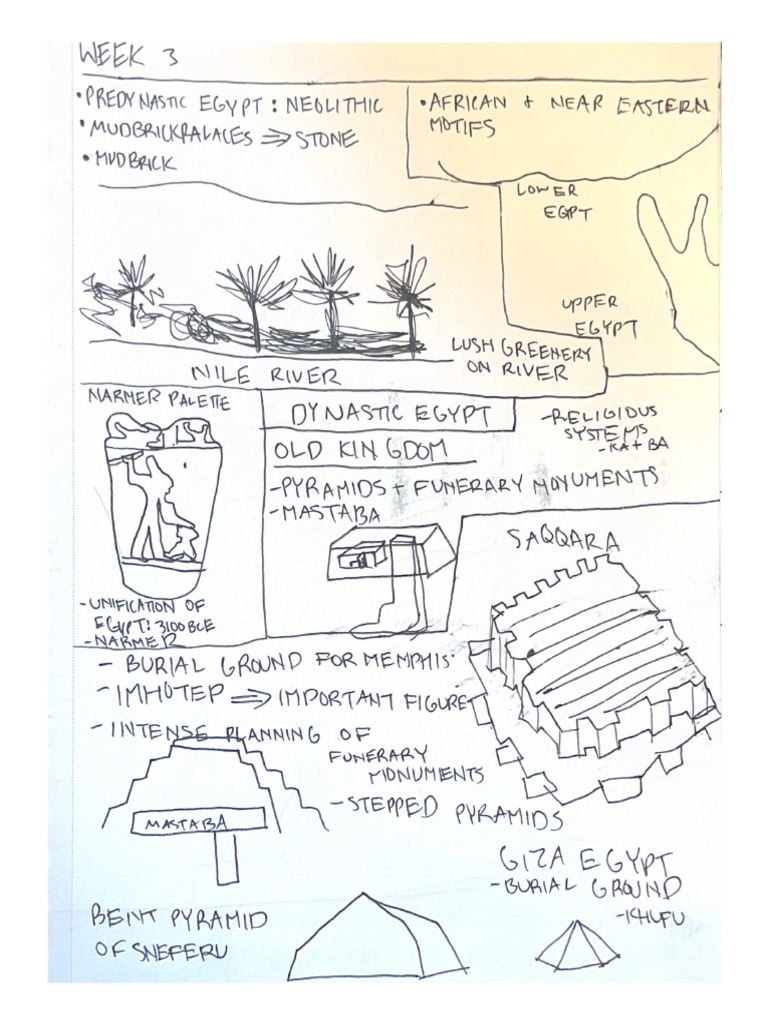 WEEK 3
• PREDYNASTIC EGYPT : NEOLITHIC
• MUDBRICKPALACES ⇒ STONE
• MUDBRICK
• AFRICAN + NEAR EASTERN
MOTIFS
LOWER
EGPT
UPPER
EGYPT
LUSH GREENERY
ON RIVER
NILE RIVER
NARMER PALETTE
- UNIFICATION OF
EGYPT: 3100 BCE
- NARMER
DYNASTIC EGYPT
OLD KINGDOM
- PYRAMIDS + FUNERARY MONUMENTS
- MASTABA
- RELIGIOUS
SYSTEMS
- KA + BA
SAQQARA
- BURIAL GROUND FOR MEMPHIS
- IMHOTEP ⇒ IMPORTANT FIGURE
- INTENSE PLANNING OF
FUNERARY
MONUMENTS
- STEPPED PYRAMIDS
MASTABA
BENT PYRAMID
OF SNEFERU
GIZA EGYPT
- BURIAL GROUND
- KHUFU